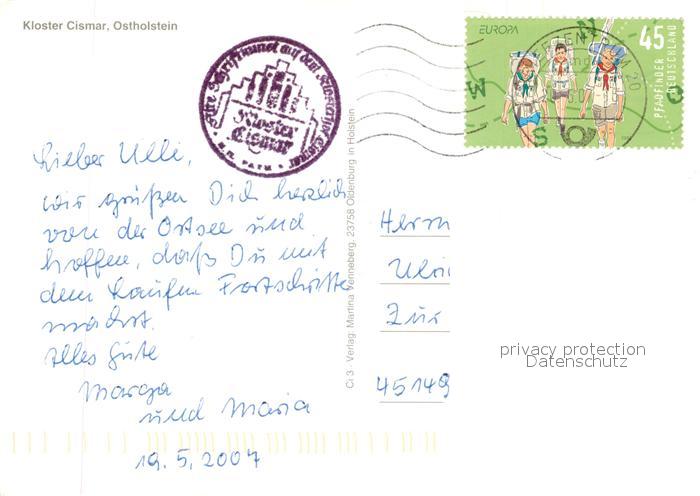 Kloster Cismar, Ostholstein
EUROPA
45
PFADFINDER
DEUTSCHLAND
Kloster
Cismar
Lieber Ulli,
wir grüßen Dich herzlich
von der Ostsee und
hoffen, daß Du mit
dem Laufen Fortschritte
machst.
Alles Gute
Marga
und Maria
19.5.2007
Ci 3 - Verlag: Martina Venneberg, 23758 Oldenburg in Holstein
Herrn
Ulri
Zur
45149
privacy protection
Datenschutz